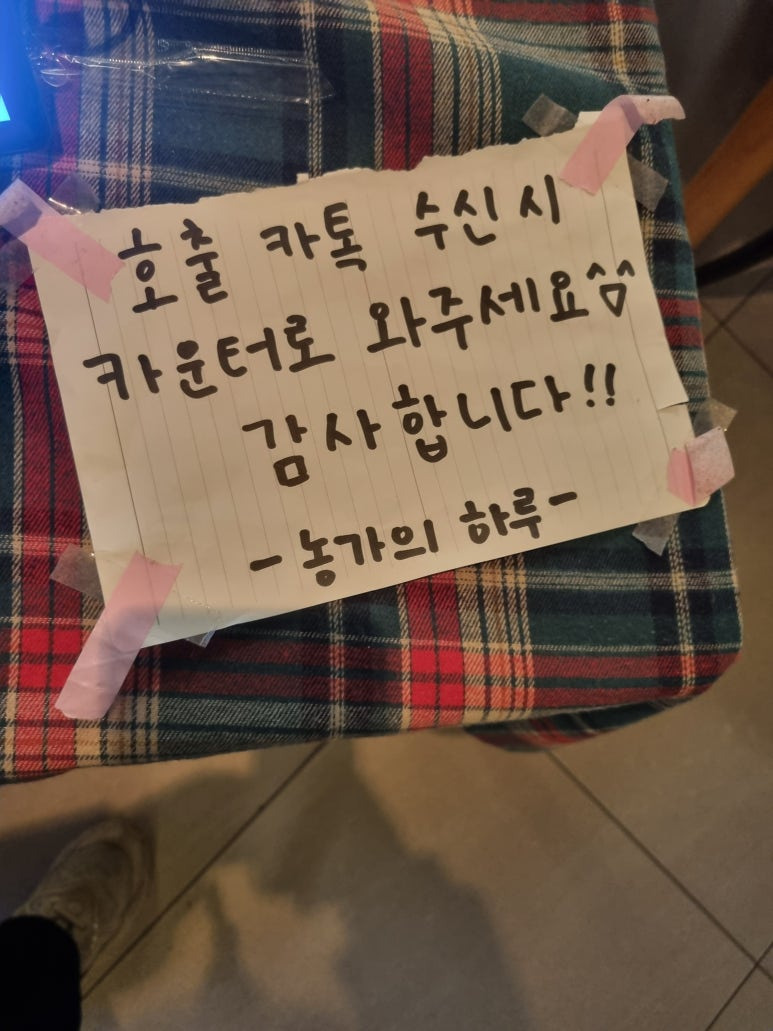 호출 카톡 수신 시
카운터로 와주세요^^
감사합니다!!
-농가의 하루-